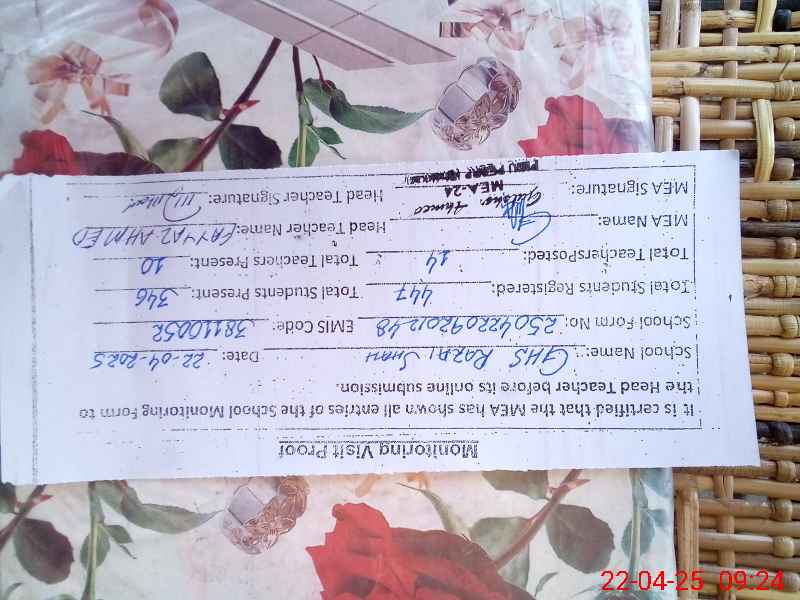 Monitoring Visit Proof
It is certified that the MEA has shown all entries of the School Monitoring Form to
the Head Teacher before its online submission.
School Name: GHS RAZAI SHAH Date: 22-04-2025
School Form No: 250422092012248 EMIS Code: 38110052
Total Students Registered: 447 Total Students Present: 346
Total TeachersPosted: 14 Total Teachers Present: 10
MEA Name: Head Teacher Name: FAYYAZ AHMED
Gulshan Ahmed
MEA Signature: MEA-24 Head Teacher Signature:
22-04-25 09:24